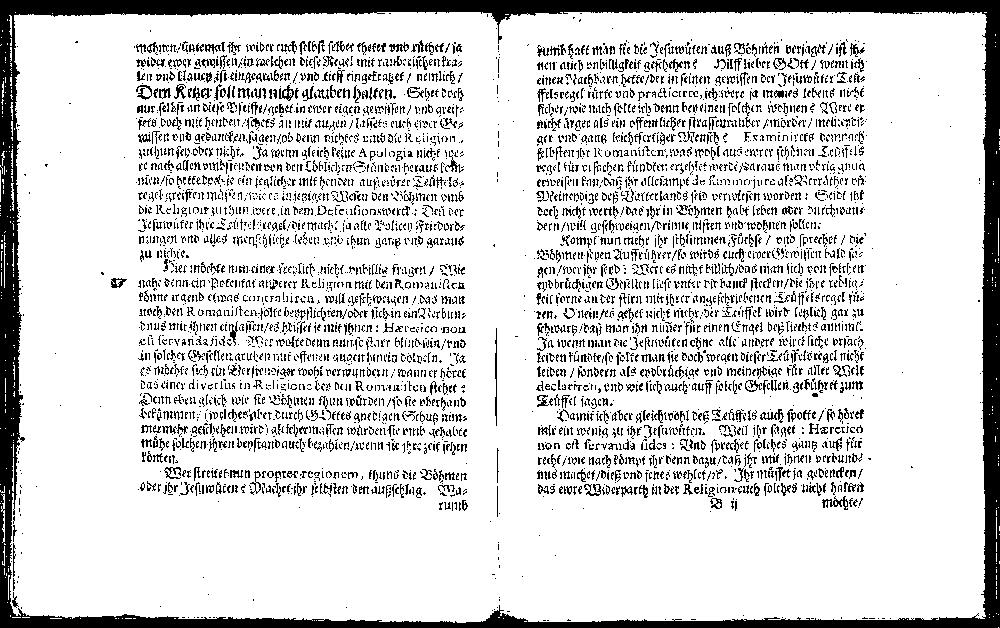 mahnen/sintemal ihr wider euch selbst selber thetet vnd richtet/ ja
wider ewer gewissen/in welchen diese Regel mit rauberischen kra-
len vnd klauen ist eingegraben/vnd tieff eingekratzet/nemlich/
Dem Ketzer soll man nicht glauben halten. Sehet doch
nur selbst an diese Pfeiffe/gehet in ewer eigen gewissen/vnd greif-
fets doch mit henden/sehets an mit augen/lassets euch ewer Ge-
wissen vnd gedancken sagen/ob denn nichtes vmb die Religion,
zuthun sey oder nicht. Ja wenn gleich keine Apologia nicht we-
re nach allen vmbstenden von den Löblichen Stánden heraus kom-
men/so hette doch ein jeglicher mit henden auß ewrer Teüffels-
regel greiffen müssen/wie es in jetzigen Wesen den Böhmen vmb
die Religion zuthun were, in dem Defensionswerck: Den der
Jesuwüter ihre Teüffelsregel/die macht ja alle Policey Friedord-
nungen vnd alles menschliche leben vnd thun gantz vnd garaus
zu nichte.
Hier möchte nun einer freylich nicht vnbillig fragen/ Wie
nahe denn ein Potentat anderer Religion mit den Romanisten
könne irgend etwas contrahiren, will geschweigen/das man
noch den Romanisten solte beypflichten/oder sich in ein Verbün-
dnus mit ihnen einlassen/es heisset je mit ihnen: Hæretico non
est servanda fides. Wer wolte denn nun so starr blind sein/vnd
in solcher Gesellen gruben mit offenen augen hinein dolpeln. Ja
es möchte sich ein Verstendiger wohl verwundern/wann er höret
das einer diversus in Religione bey den Romanisten stehet:
Denn eben gleich wie sie Böhmen thun würden/so sie oberhand
bekämmen/(welches aber durch GOttes gnedigen Schutz nim-
mermehr geschehen wird) gleichermassen würden sie vmb gehabte
mühe solchen ihren beystand auch bezahlen/wenn sie ihre zeit sehen
könten.
Wer streitet nun propter regionem, thuns die Böhmen
oder ihr Jesuwüten? Machet ihr selbsten den außschlag. Wa-
rumb
rumb hatt man sie die Jesuwüten auß Böhmen verjaget/ist ih-
nen auch vnbilligkeit geschehen? Hilff lieber GOtt/wenn ich
einen Nachbarn hette/der in seinen gewissen der Jesuwüter Teü-
ffelsregel fürte vnd practicirte, ich were ja meines lebens nicht
sicher/wie nach solte ich denn bey einen solchen wohnen? Were er
nicht ärger als ein offentlicher strassenrauber/mörder/meineydi-
ger vnd gantz leichtfertiger Mensch? Examinirets demnach
selbsten ihr Romanisten, was wohl aus ewrer schönen Teüffels
regel für vrsachen kündten erzehlet werdē/daraus man obrig gnug
erweisen kan/daß ihr allesampt de summo jure als Verräther vñ
Meineydige deß Vatterlands seid verwiesen worden: Seidt ihr
doch nicht werth/das ihr in Böhmen habt leben oder durchwan-
dern/will geschweigen/drinne nisten vnd wohnen sollen.
Kompt nun mehr ihr schlimmen Füchse/ vnd sprechet/ die
Böhmen seyen Auffrührer/so wirds euch ewer Gewissen bald sa-
gen/wer ihr seyd: Were es nicht billich/das man sich von solchen
eydbrüchigen Gesellen liese vnter die banck stecken/die ihre redlig-
keit forne an der stirn mit ihrer angeschriebenen Teüffelsregel fü-
ren. O nein/es gehet nicht mehr/der Teüffel wird letzlich gar zu
schwartz/daß man ihn nim̃er für einen Engel deß liechts annimt.
Ja wenn man die Jesuwüten ohne alle andere wirckliche vrsach
leiden kündte/so solte man sie doch wegen dieser Teüffelsregel nicht
leiden/ sondern als eydbrüchige vnd meineydige für aller Welt
declariren, vnd wie sich auch auff solche Gesellen gebühret zum
Teüffel jagen.
Damit ich aber gleichwohl deß Teüffels auch spotte/so höret
mir ein wenig zu ihr Jesuwüten. Weil ihr saget: Hæretico
non est servanda fides: Vnd sprechet solches gantz auß für
recht/wie nach kömpt ihr denn dazu/daß ihr mit ihnen verbünd-
nus machet/dieß vnd jenes wehlet/ꝛc. Ihr müsset ja gedencken/
das ewre Widerparth in der Religion euch solches nicht halten
B ij möchte/